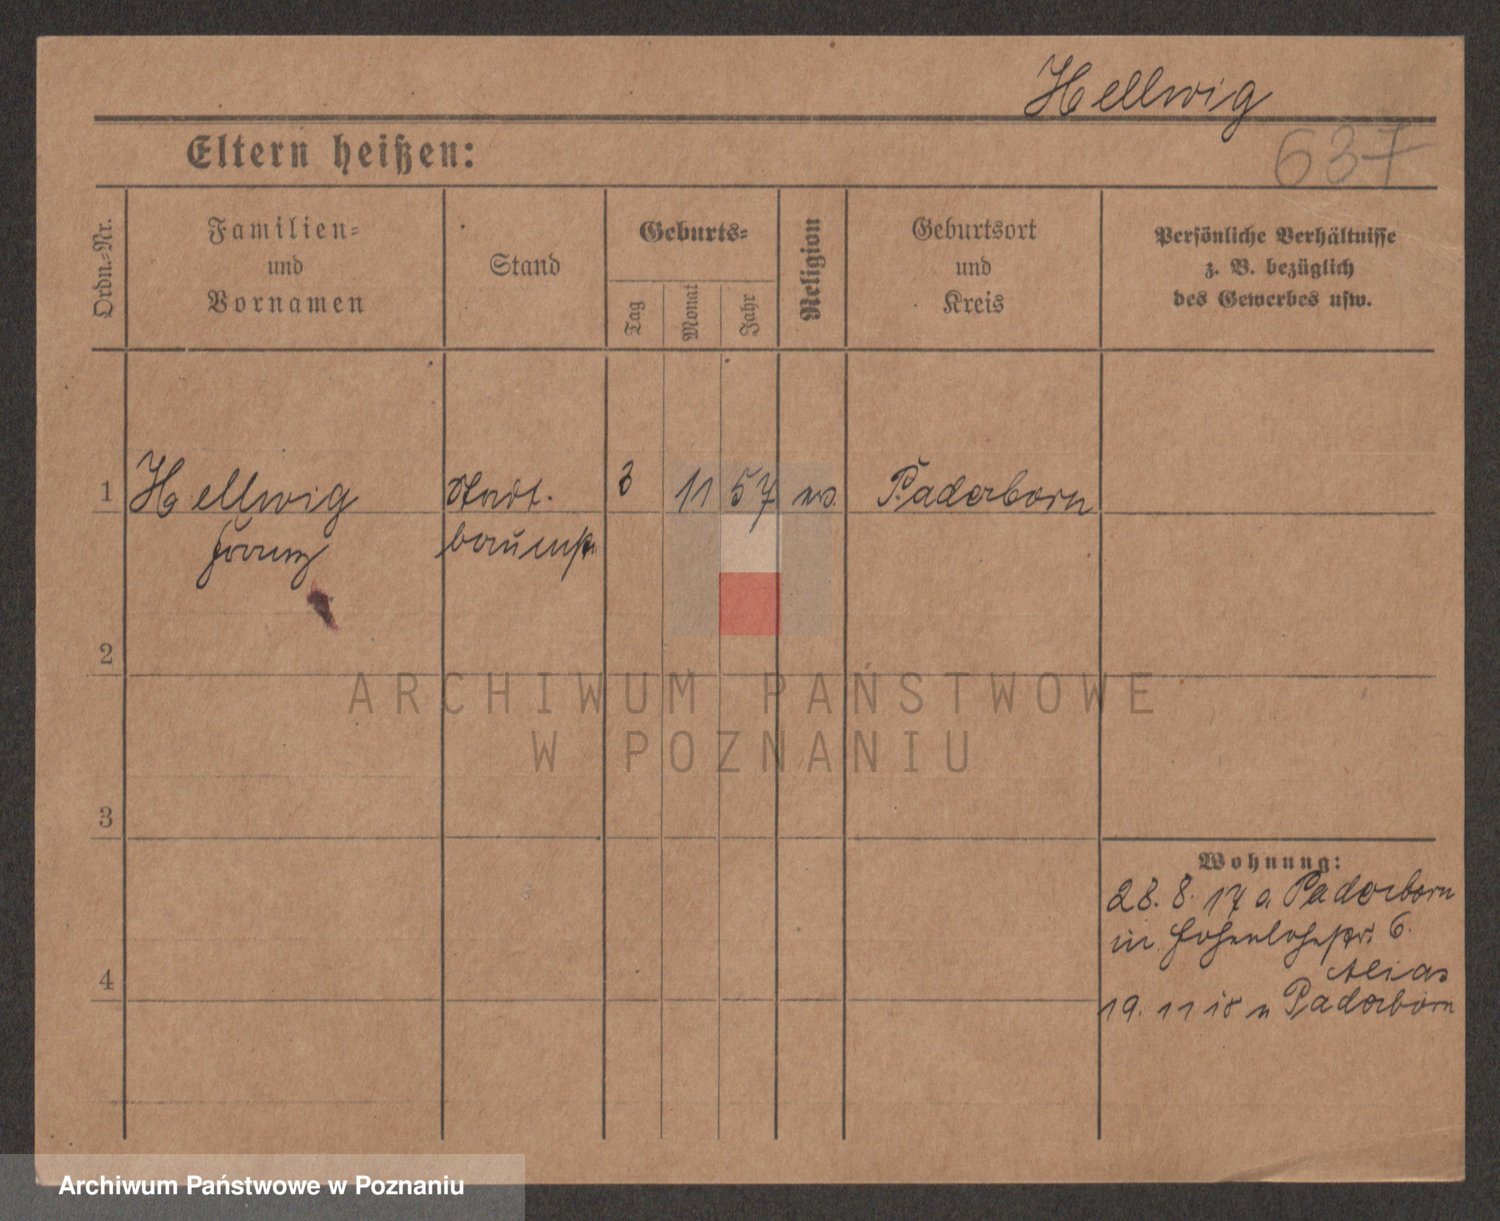 Hellwig
637
Eltern heißen:
Ordn.-Nr.
Familien-
und
Vornamen
Stand
Geburts-
Tag
Monat
Jahr
Religion
Geburtsort
und
Kreis
Persönliche Verhältnisse
z. B. bezüglich
des Gewerbes usw.
1
Hellwig
Franz
Stadt.
3
11
57
Paderborn
2
3
4
ARCHIWUM PAŃSTWOWE
W POZNANIU
Wohnung:
28. 8. 17 a Paderborn
in Hohenlohestr. 6.
19. 11 18 n Paderborn
Archiwum Państwowe w Poznaniu